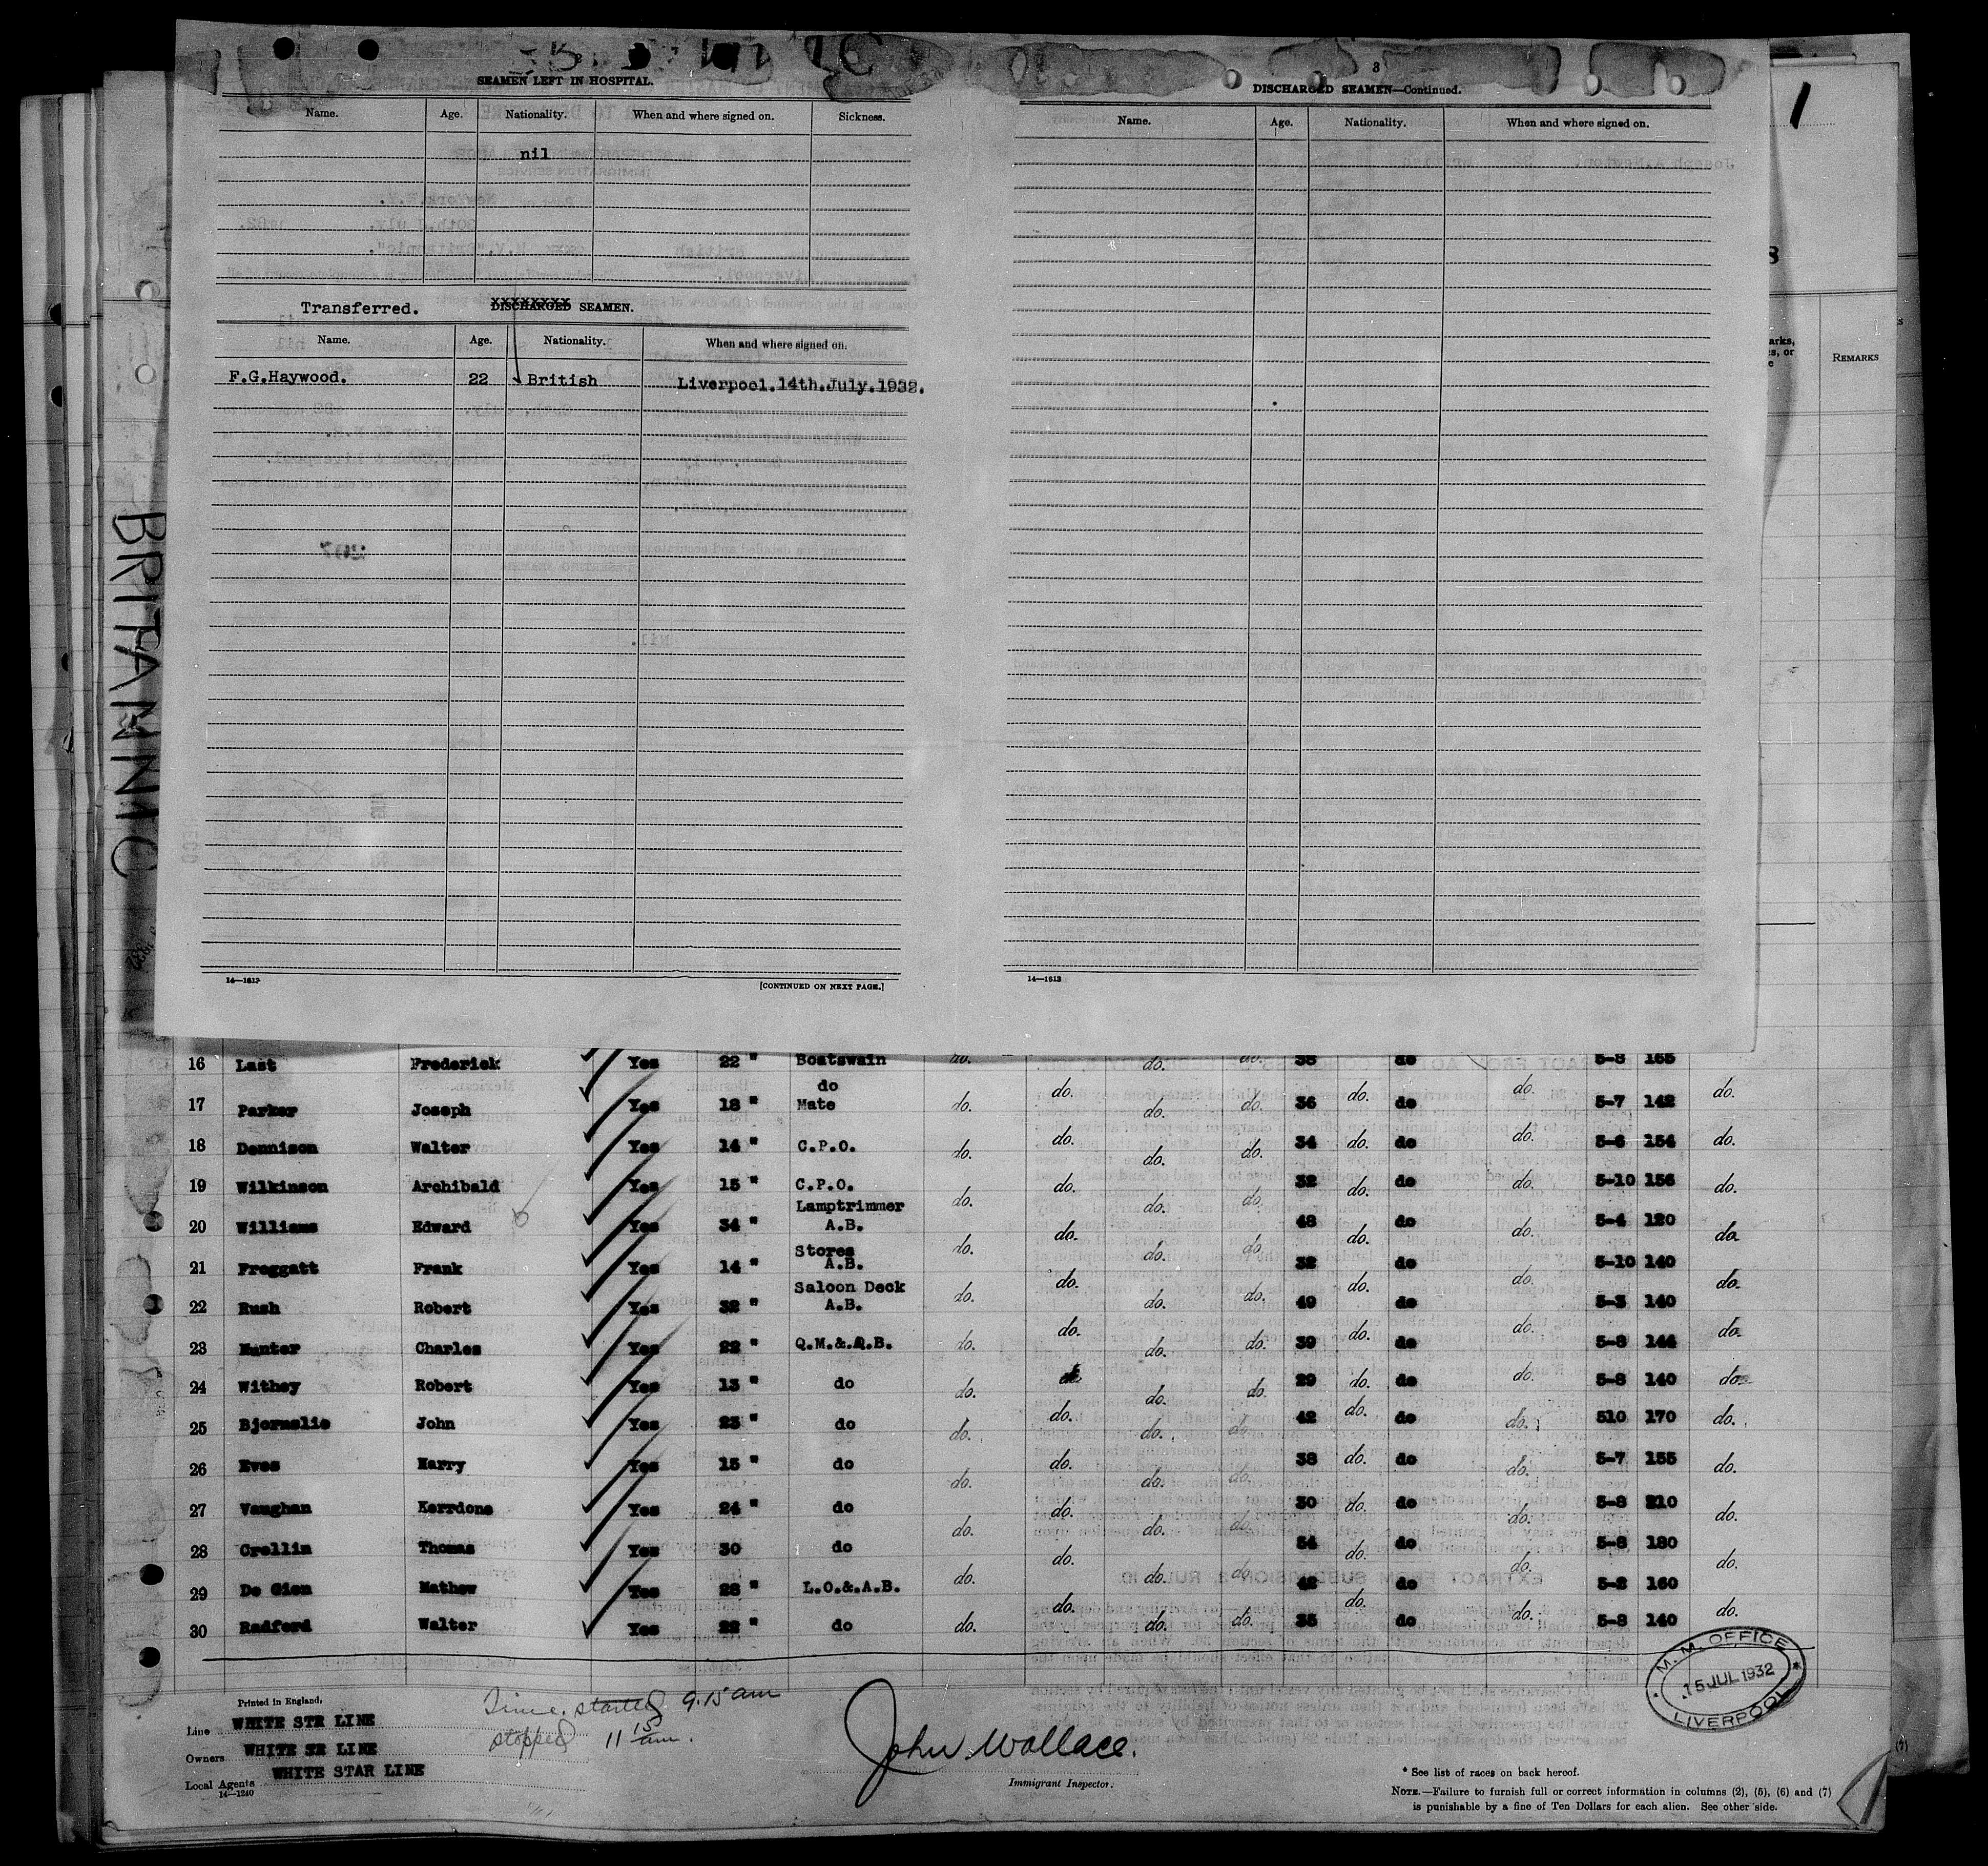 SEAMEN LEFT IN HOSPITAL.
Name. Age. Nationality. When and where signed on. Sickness.
nil
Transferred. DISCHARGED SEAMEN.
Name. Age. Nationality. When and where signed on.
F.G.Haywood. 22 British Liverpool.14th.July.1932.
14—1613
[CONTINUED ON NEXT PAGE.]
3
DISCHARGED SEAMEN—Continued.
Name. Age. Nationality. When and where signed on.
14—1613
1
REMARKS
BRITANNIC
16 Last Frederick Yes 22 " Boatswain do. do. do. 38 do 5-8 165
17 Parker Joseph Yes 18 " do Mate do. do. do. do. 36 do. do do. 5-7 142 do.
18 Dennison Walter Yes 14 " C.P.O. do. do. do. do. 34 do. do do. 5-6 154 do.
19 Wilkinson Archibald Yes 15 " C.P.O. do. do. do. do. 32 do. do do. 5-10 156 do.
20 Williams Edward Yes 34 " Lamptrimmer A.B. do. do. do. do. 48 do. do do. 5-4 120 do.
21 Froggatt Frank Yes 14 " Stores A.B. do. do. do. do. 32 do. do do. 5-10 140 do.
22 Rush Robert Yes 32 " Saloon Deck A.B. do. do. do. do. 49 do. do do. 5-3 140 do.
23 Hunter Charles Yes 22 " Q.M.&.A.B. do. do. do. do. 39 do. do do. 5-8 144 do.
24 Withey Robert Yes 13 " do do. do. do. do. 29 do. do do. 5-8 140 do.
25 Bjornslie John Yes 23 " do do. do. do. do. 42 do. do do. 510 170 do.
26 Eves Harry Yes 15 " do do. do. do. do. 38 do. do do. 5-7 155 do.
27 Vaughan Kerrdons Yes 24 " do do. do. do. do. 30 do. do do. 5-8 210 do.
28 Crellin Thomas Yes 30 do do. do. do. do. 54 do. do do. 5-8 180 do.
29 De Gien Mathew Yes 28 " L.O.&.A.B. do. do. do. do. 42 do. do do. 5-2 160 do.
30 Radford Walter Yes 22 " do do. do. do. 35 do do. 5-8 140
Printed in England.
Line WHITE STR LINE
Owners WHITE SR LINE
Local Agents WHITE STAR LINE
14—1240
Time started 9.15 am
stopped 11 15 am.
John Wallace.
Immigrant Inspector.
M. M. OFFICE
15 JUL 1932
LIVERPOOL
* See list of races on back hereof.
NOTE.—Failure to furnish full or correct information in columns (2), (5), (6) and (7)
is punishable by a fine of Ten Dollars for each alien. See other side.